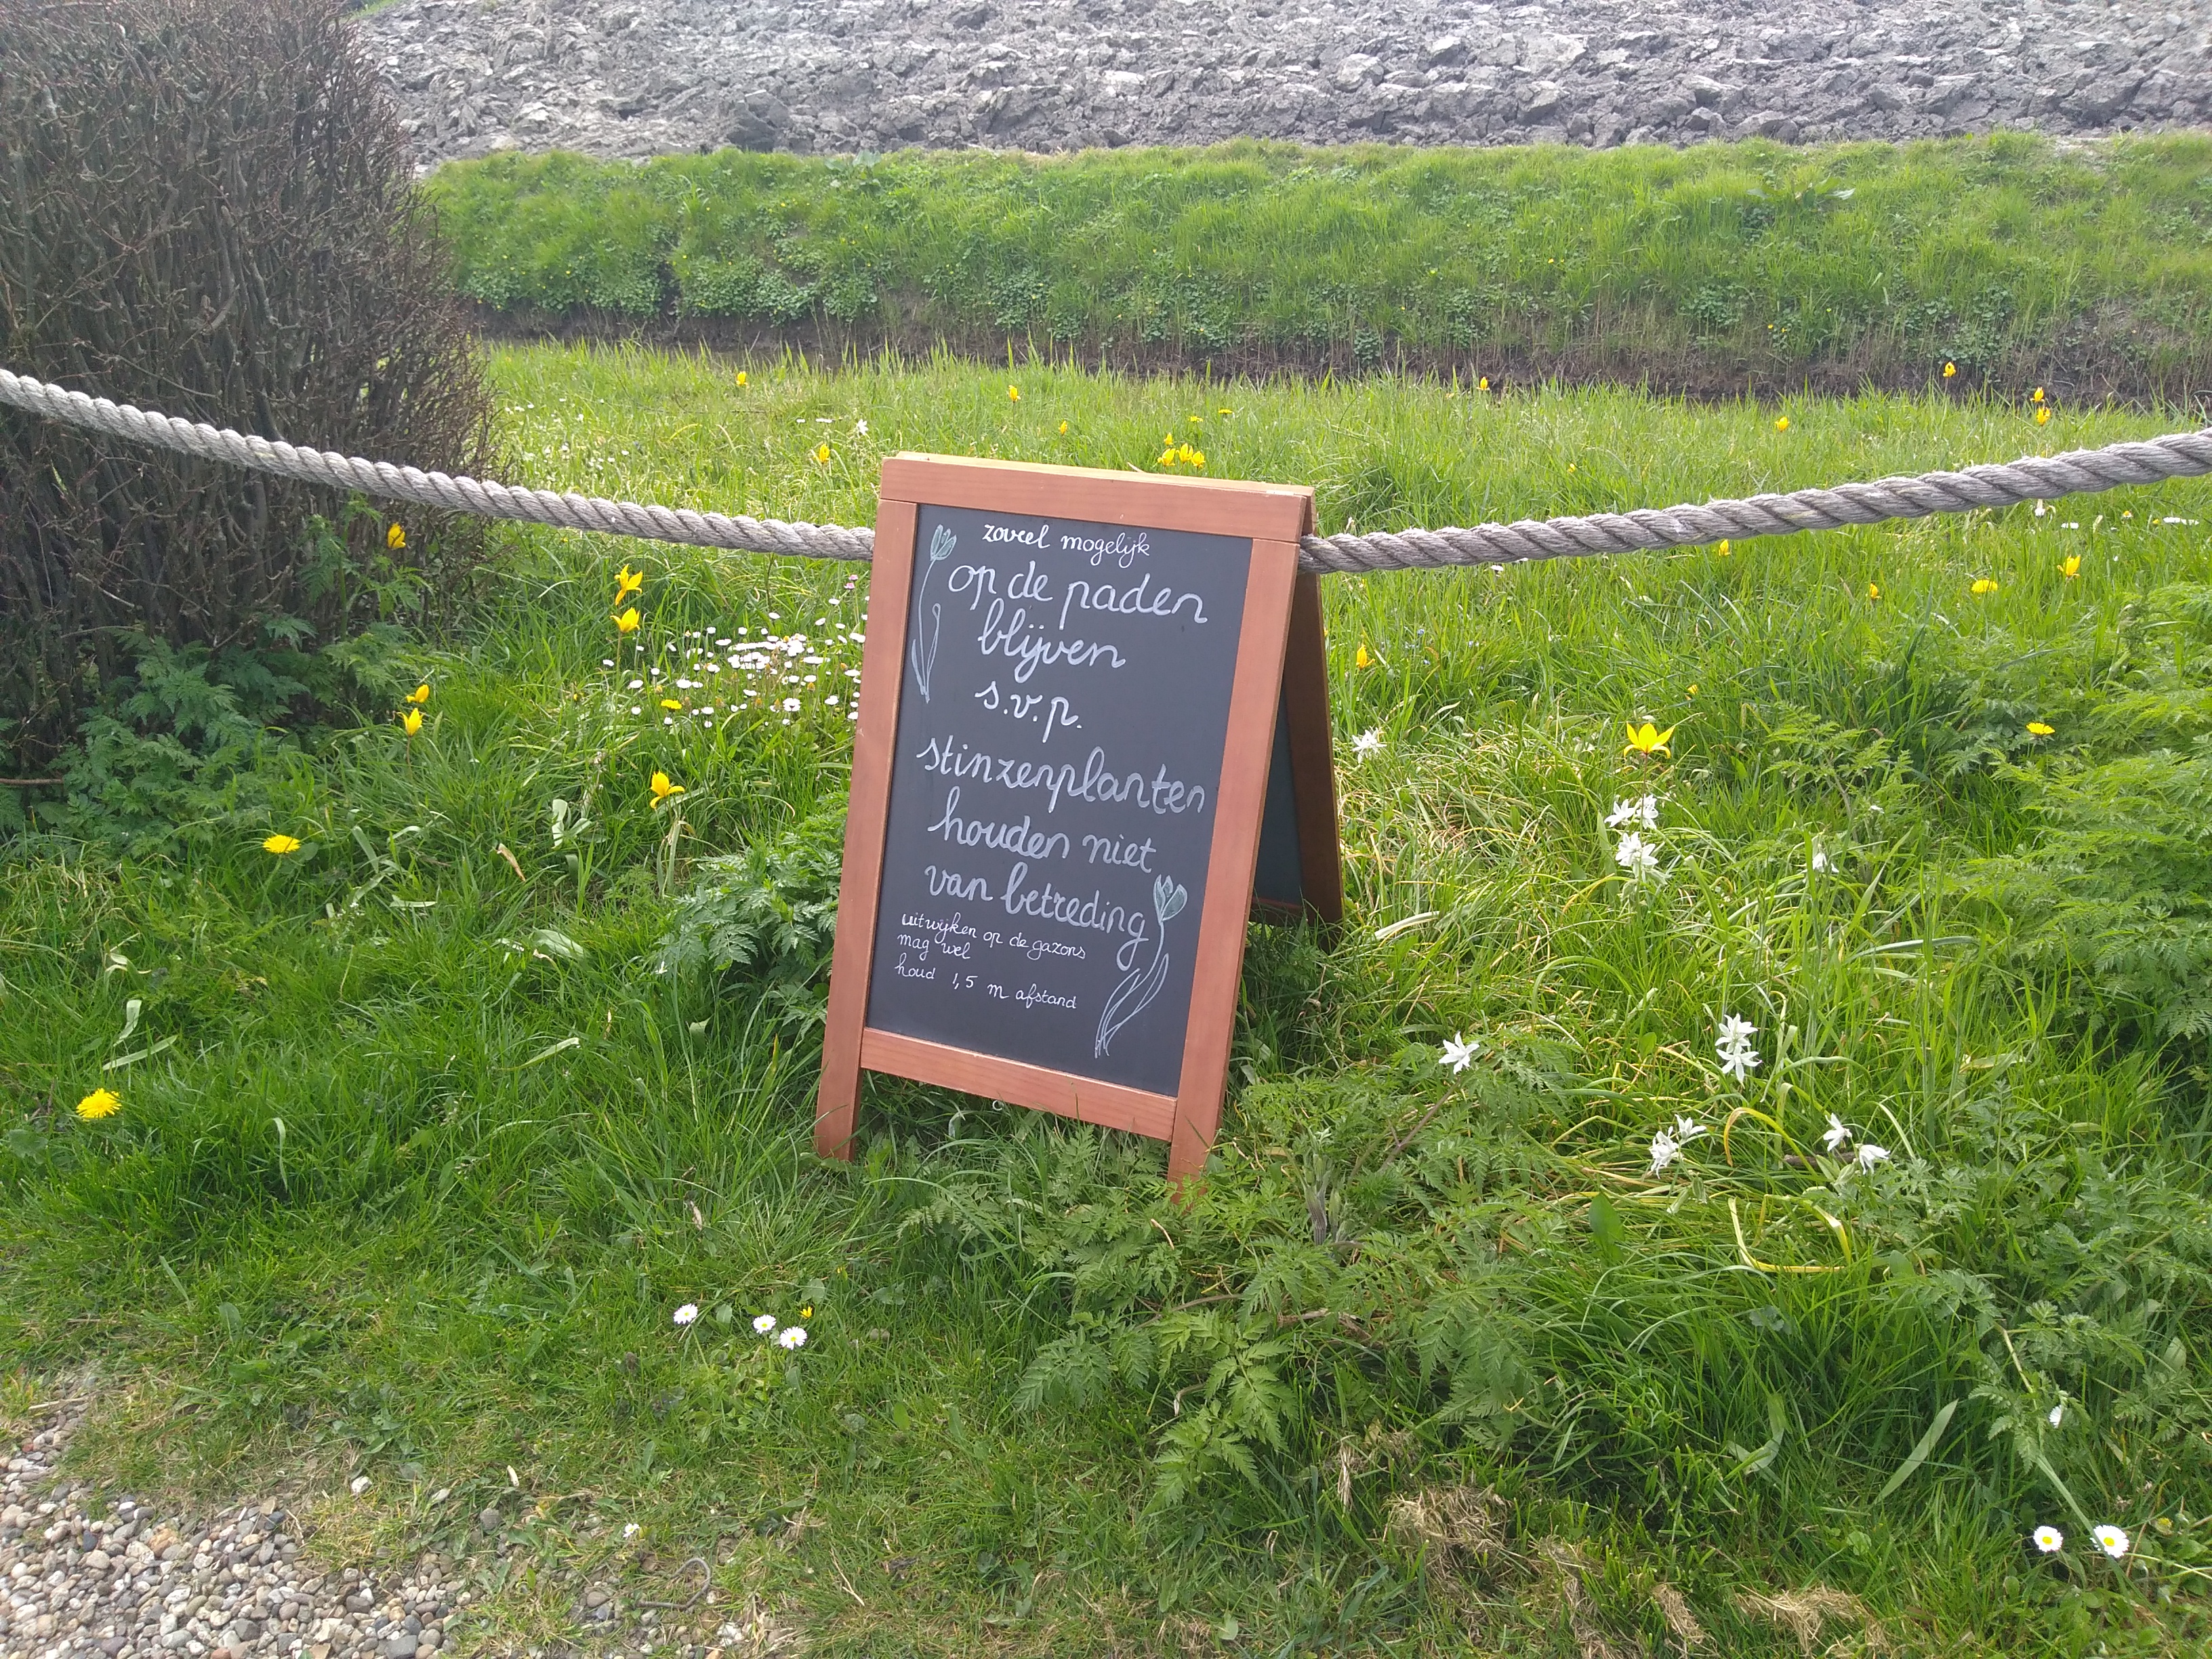 zoveel mogelijk
op de paden
blijven
s.v.p.
stinzenplanten
houden niet
van betreding
uitwijken op de gazons
mag wel
houd 1,5 m afstand